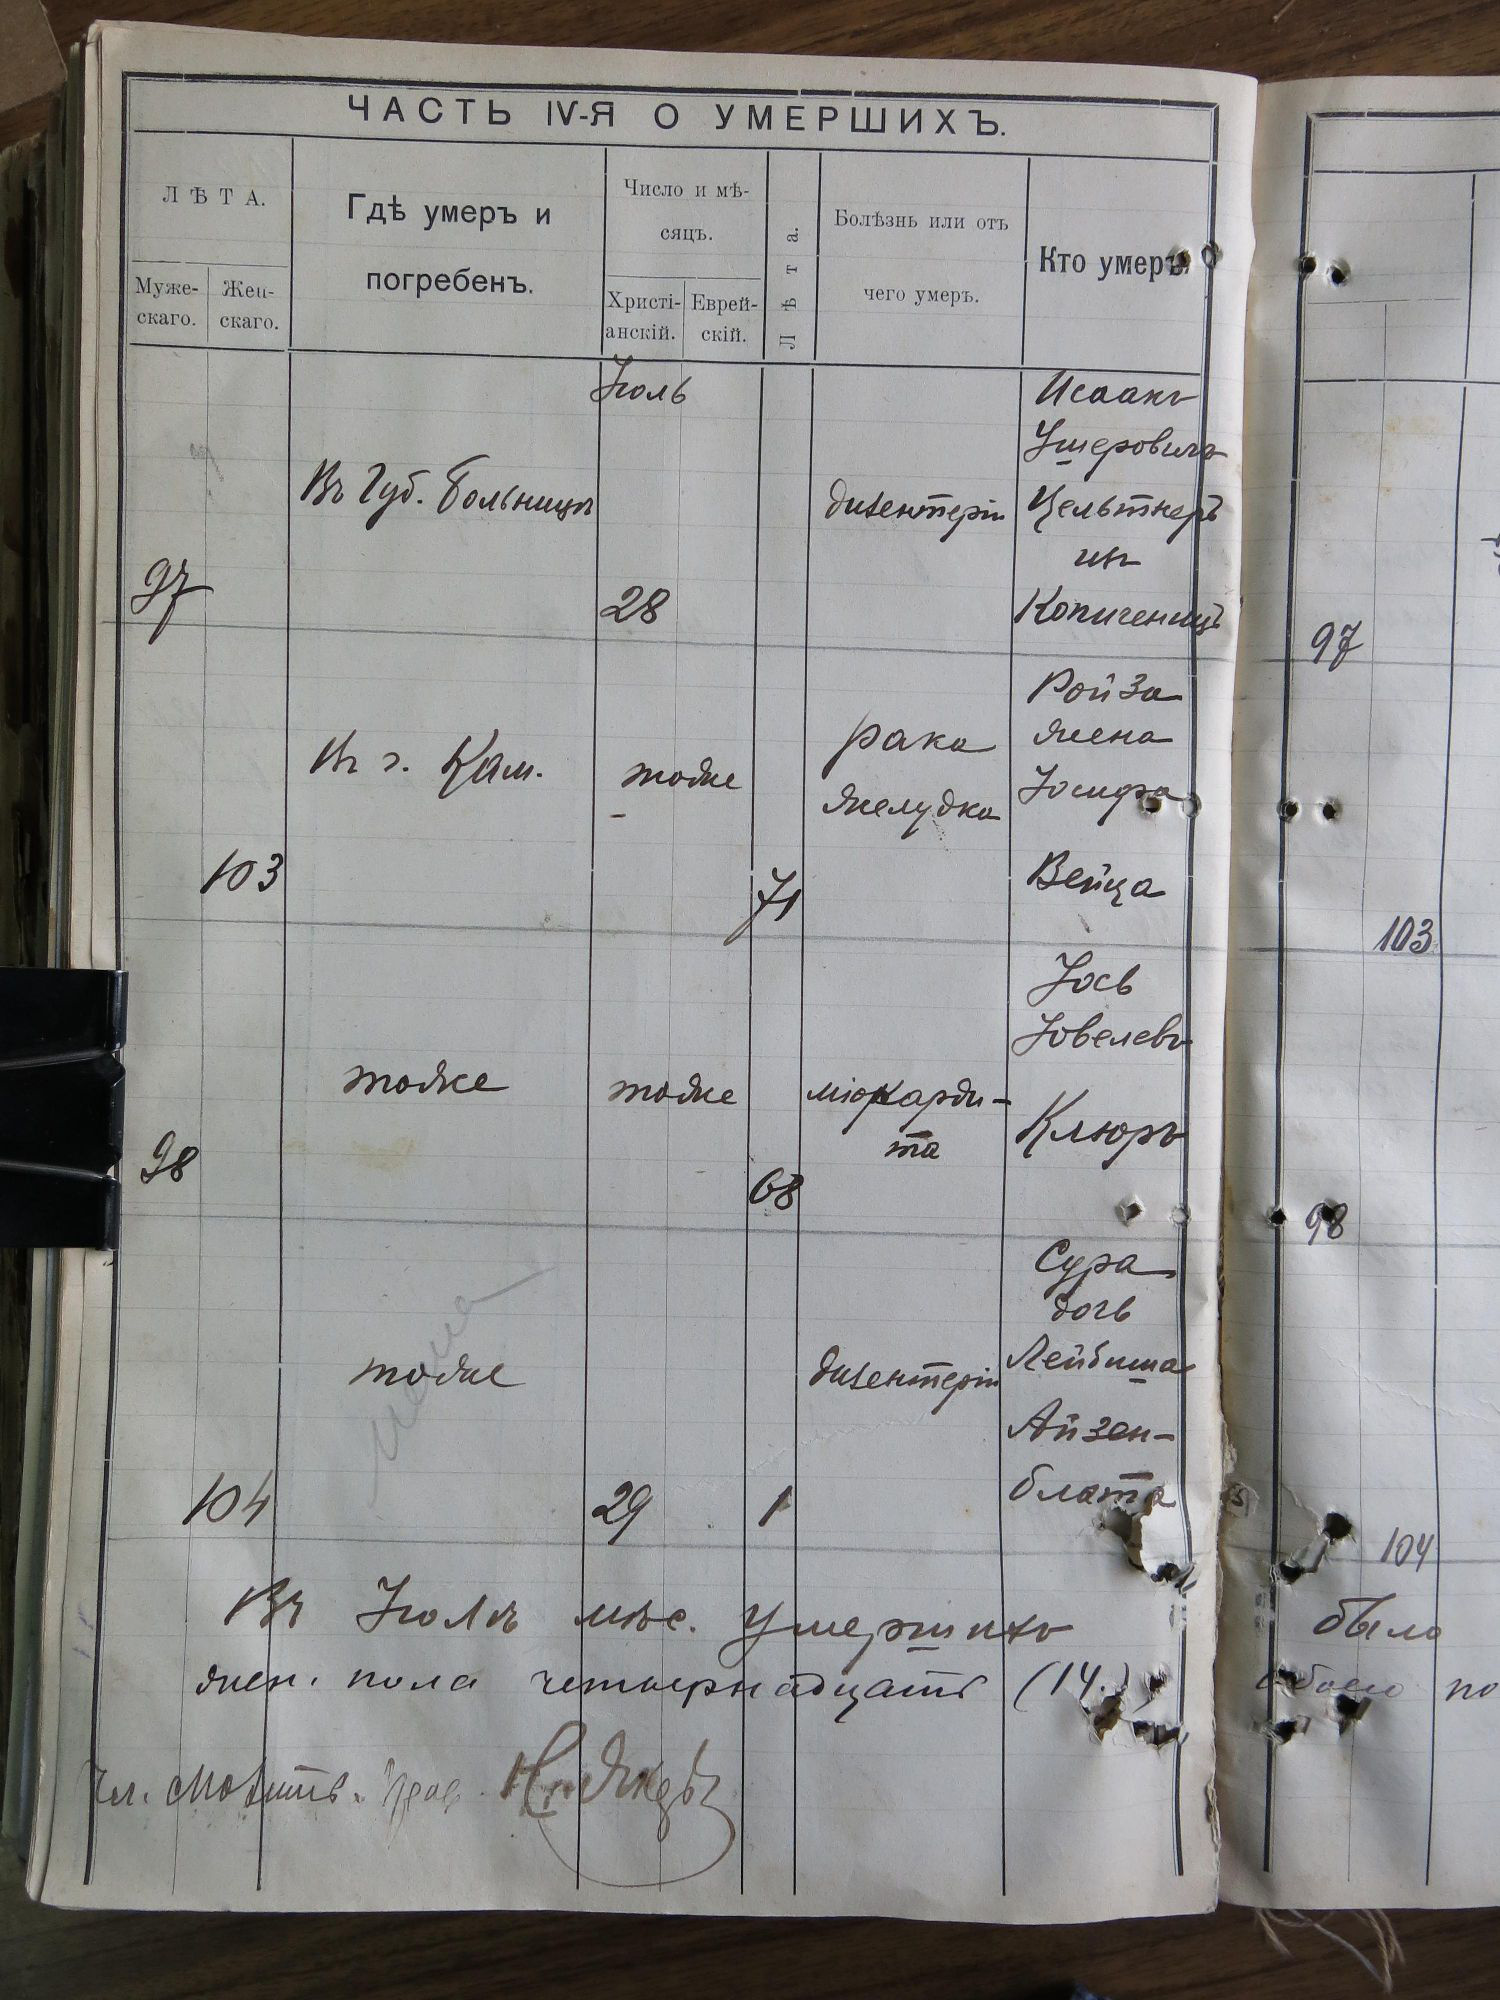 ЧАСТЬ IV-Я О УМЕРШИХЪ.
ЛѢТА.
Муже-
скаго.
Жен-
скаго.
Гдѣ умеръ и
погребенъ.
Число и мѣ-
сяцъ.
Христі-
анскій.
Еврей-
скій.
Лѣта.
Болѣзнь или отъ
чего умеръ.
Кто умеръ.
97
Въ Губ. больницѣ
Іюль
28
дизентеріи
Исаакъ
Ушеровичъ
Цельтнеръ
изъ
Копиченицъ
103
Въ г. Кам.
тоже
71
рака
желудка
Ройза
жена
Іосифа
Вейца
98
тоже
тоже
68
міокарди-
та
Іось
Іовелевъ
Клюръ
104
тоже
29
1
дизентеріи
Сура
дочь
Лейбиша
Айзен-
блата
Въ Іюлѣ мѣс. умершихъ
жен. пола четырнадцать (14.)
97
103
98
104
было
обоего по